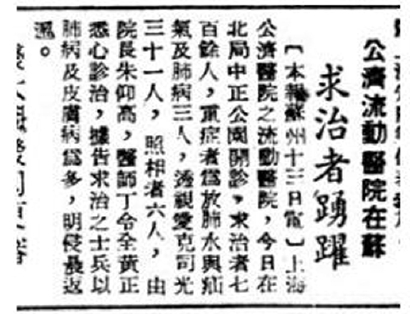 公濟流動醫院在蘇
求治者踴躍
〔本報蘇州十三日電〕上海
公濟醫院之流動醫院,今日在
北局中正公園開診,求治者七
百餘人,重症者爲放肺水與疝
氣及肺病三人,透視愛克司光
三十一人,照相者六人,由
院長朱仰高,醫師丁令全黃正
悉心診治,據告求治之士兵以
肺病及皮膚病爲多,明侵晨返
滬。